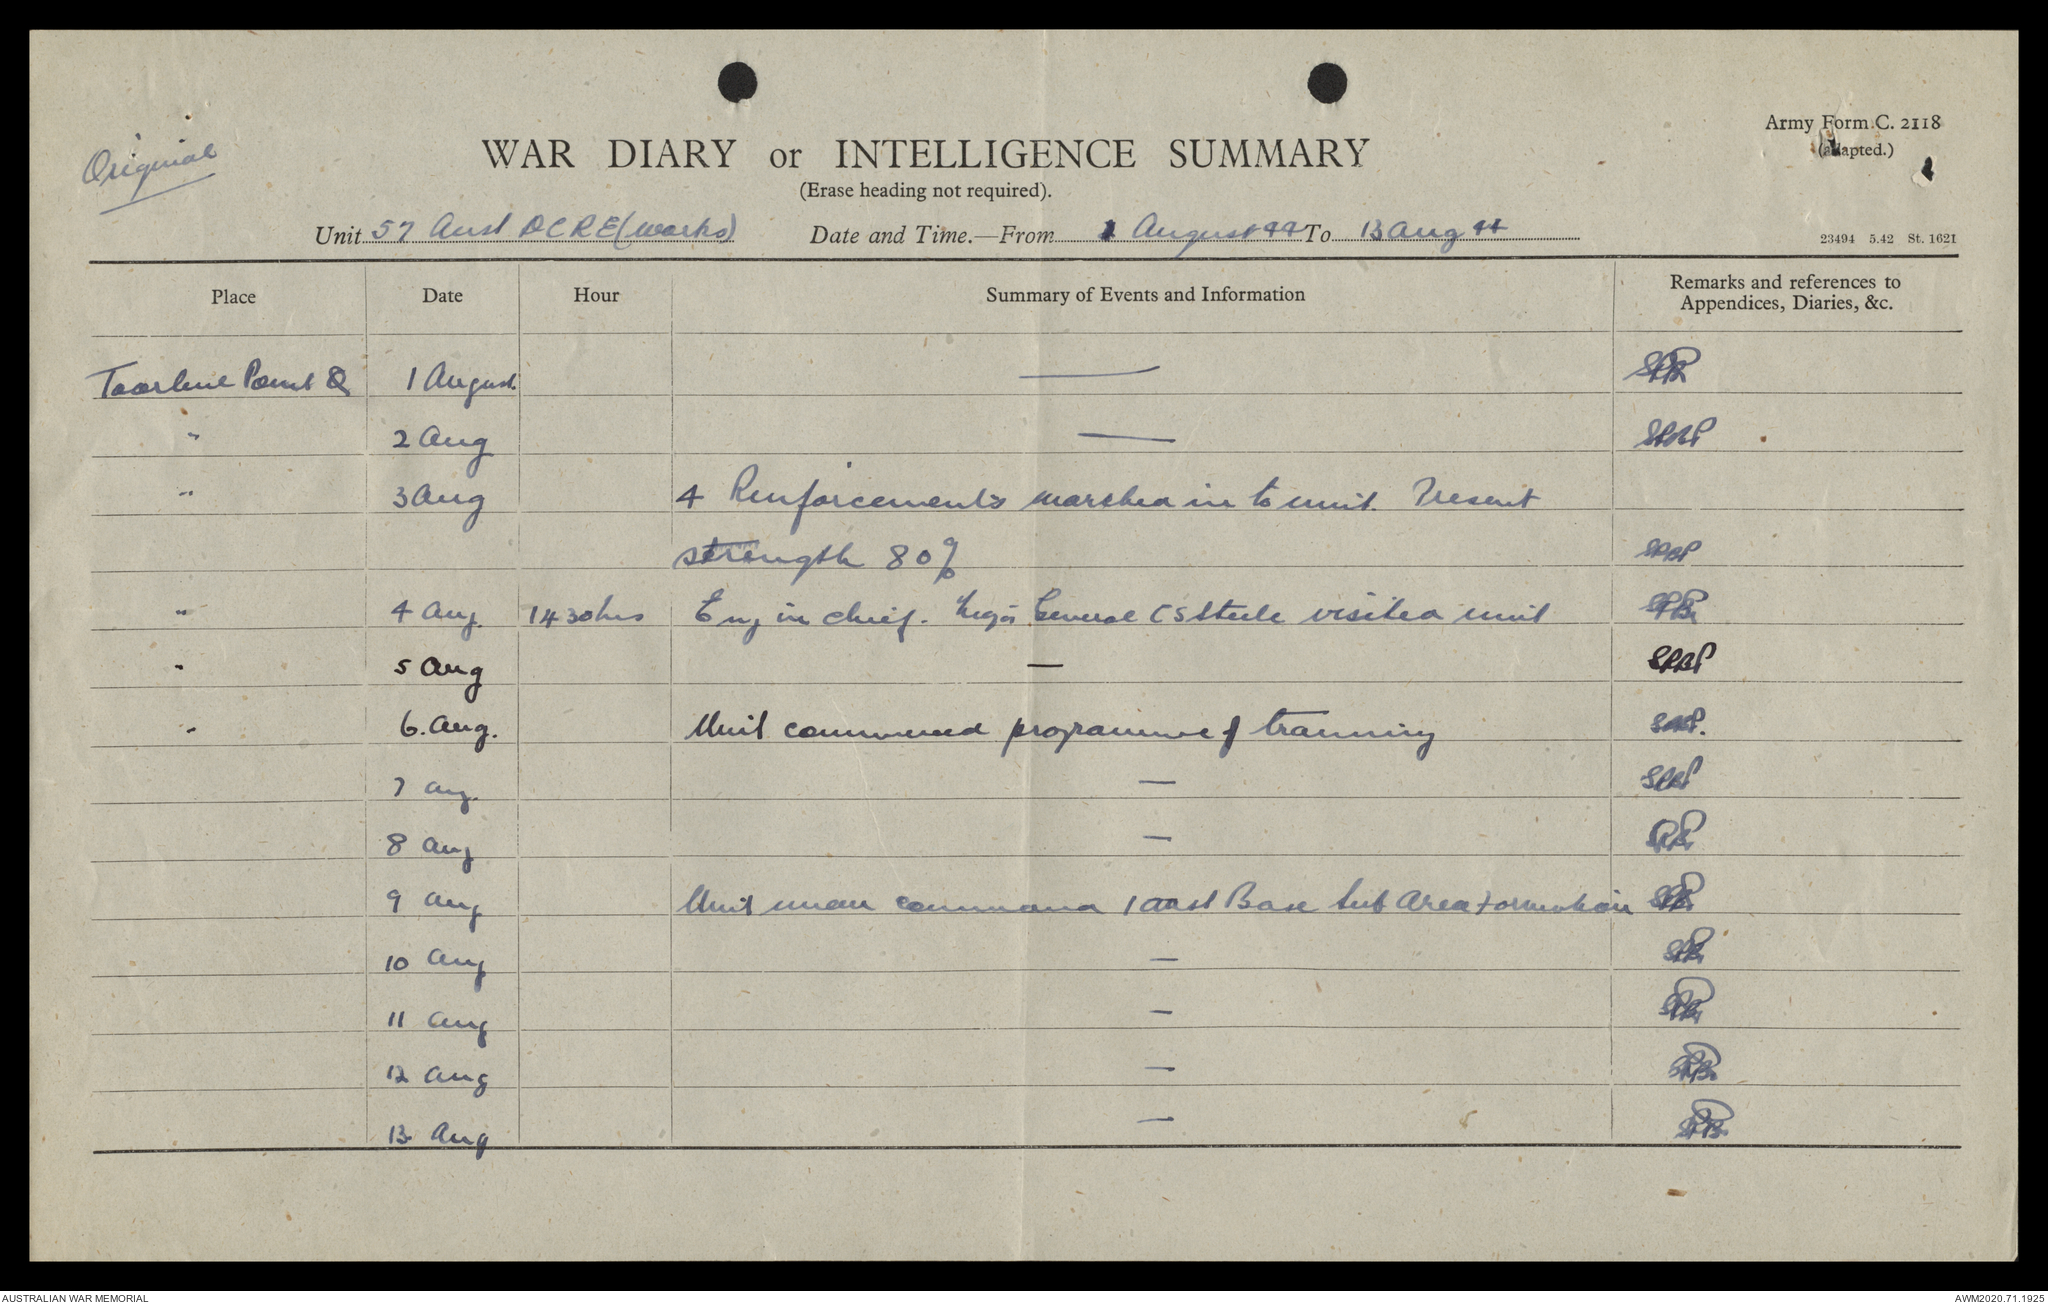 Original
WAR DIARY or INTELLIGENCE SUMMARY
(Erase heading not required).
Army Form C. 2118
(adapted.)
Unit 57 Aust DCRE (Works) Date and Time.—From 1 August 44 To 13 Aug 44
23494 5.42 St. 1621
Place Date Hour Summary of Events and Information Remarks and references to Appendices, Diaries, &c.
Point Q 1 August. —
" 2 Aug — SRBP
" 3 Aug 4 Reinforcements marched in to unit. Present
strength 80% SRBP
" 4 Aug. 1430hrs Eng in chief. Major General CS Steele visited unit
" 5 Aug — SRBP
" 6. Aug. Unit commenced programme of training SRBP.
7 Aug. — SRBP
8 Aug —
9 Aug Unit under command 1 Aust Base Sub Area formation
10 Aug —
11 Aug —
12 Aug —
13 Aug —
AUSTRALIAN WAR MEMORIAL
AWM2020.71.1925